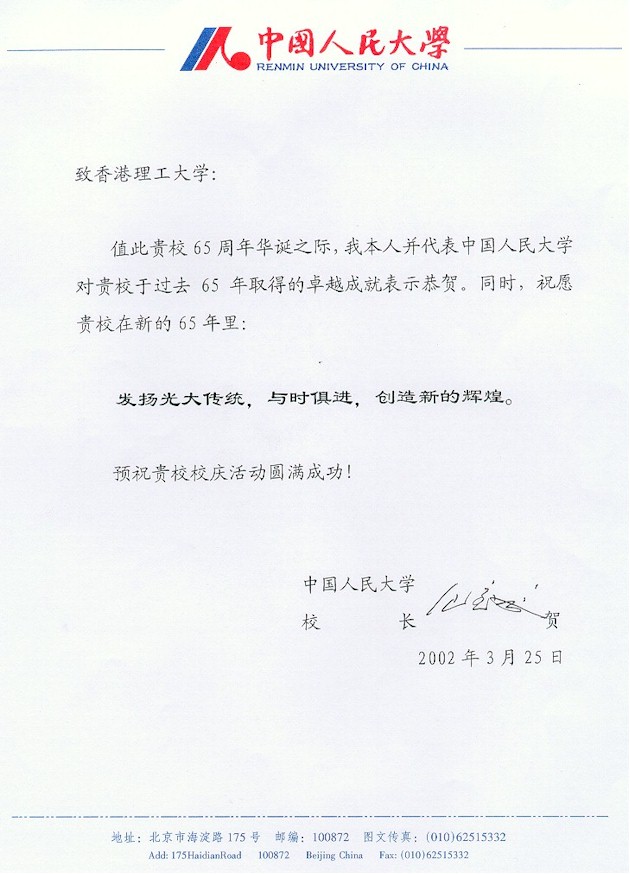 中國人民大學
RENMIN UNIVERSITY OF CHINA
致香港理工大学：
值此贵校 65 周年华诞之际，我本人并代表中国人民大学
对贵校于过去 65 年取得的卓越成就表示恭贺。同时，祝愿
贵校在新的 65 年里：
发扬光大传统，与时俱进，创造新的辉煌。
预祝贵校校庆活动圆满成功！
中国人民大学
校 长 贺
2002 年 3 月 25 日
地址：北京市海淀路 175 号 邮编：100872 图文传真：(010)62515332
Add: 175HaidianRoad 100872 Beijing China Fax: (010)62515332